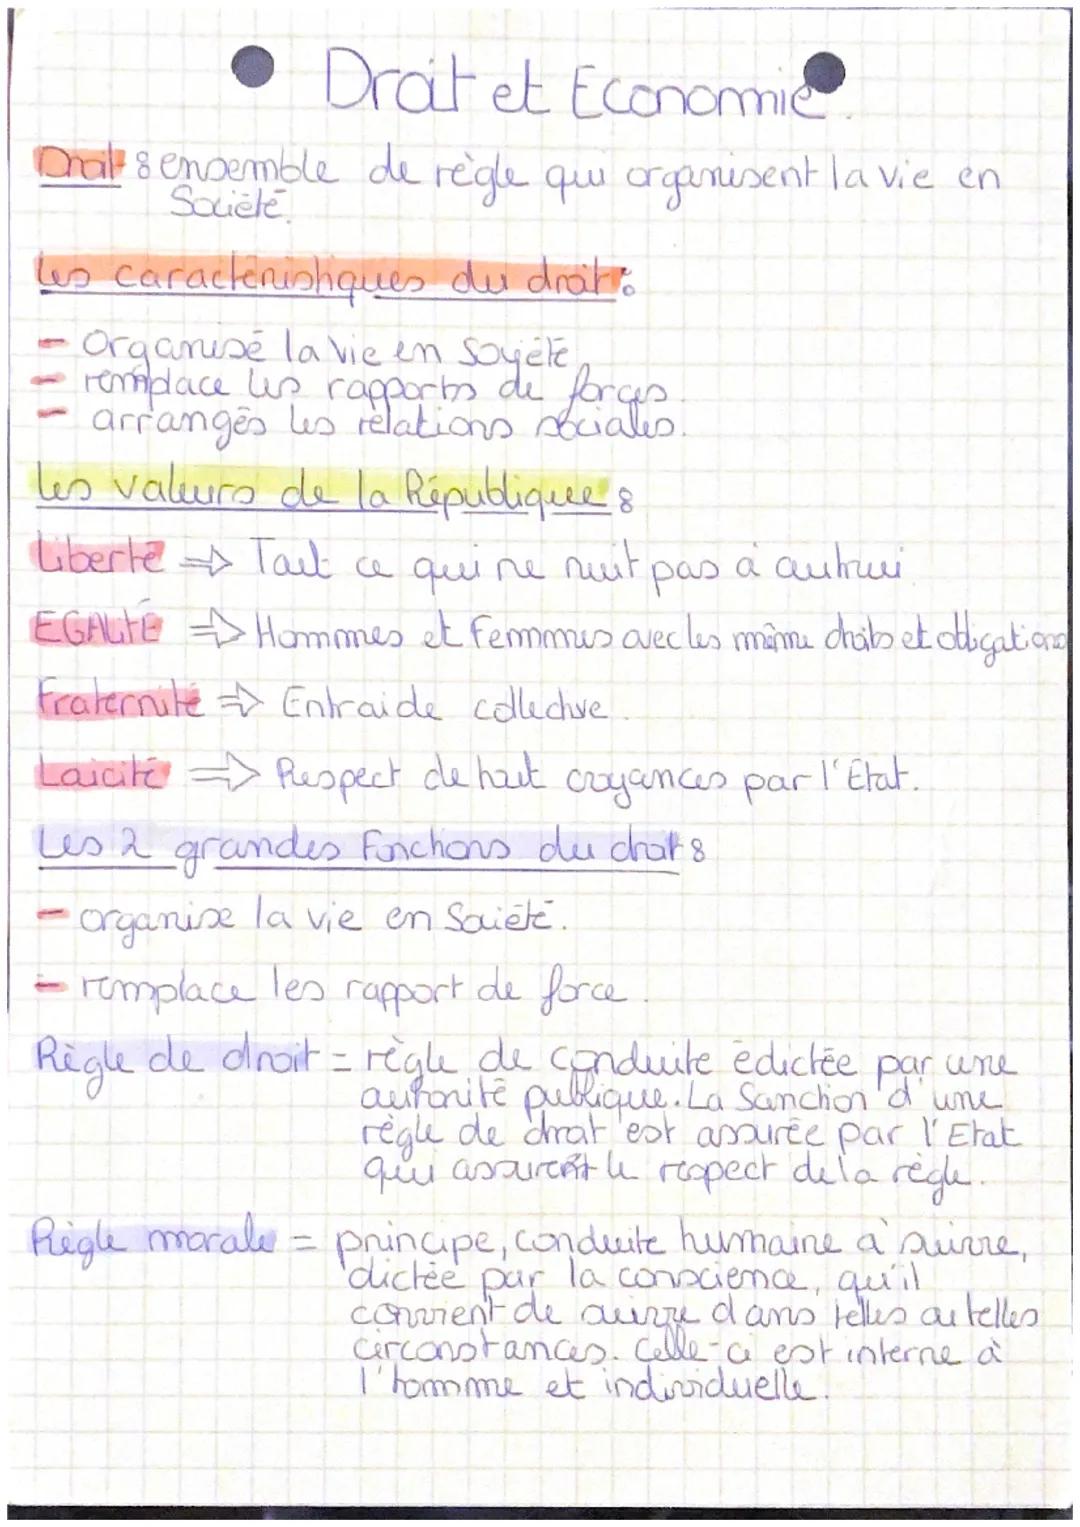 Droit et Economie.
Droit : ensemble de règle qui organisent la vie en
Société.
Les caractéristiques du droit :
- Organisé la vie en Soyété.
- remplace les rapports de forces.
- arrangés les relations sociales.
Les valeurs de la République :
Liberté => Tout ce qui ne nuit pas à autrui.
EGALITÉ => Hommes et Femmmes avec les même droits et obligations
Fraternité => Entraide collective.
Laicité => Respect de tout croyances par l'Etat.
Les 2 grandes Fonctions du droit :
- organise la vie en Société.
- remplace les rapport de force.
Règle de droit = règle de conduite édictée par une
autorité publique. La Sanction d'une
règle de droit est assurée par l'Etat
qui assurent le respect de la règle.
Règle morale = principe, conduite humaine à suivre,
dictée par la conscience, qu'il
convient de suivre dans telles ou telles
circonstances. Celle-ci est interne à
l'homme et individuelle.